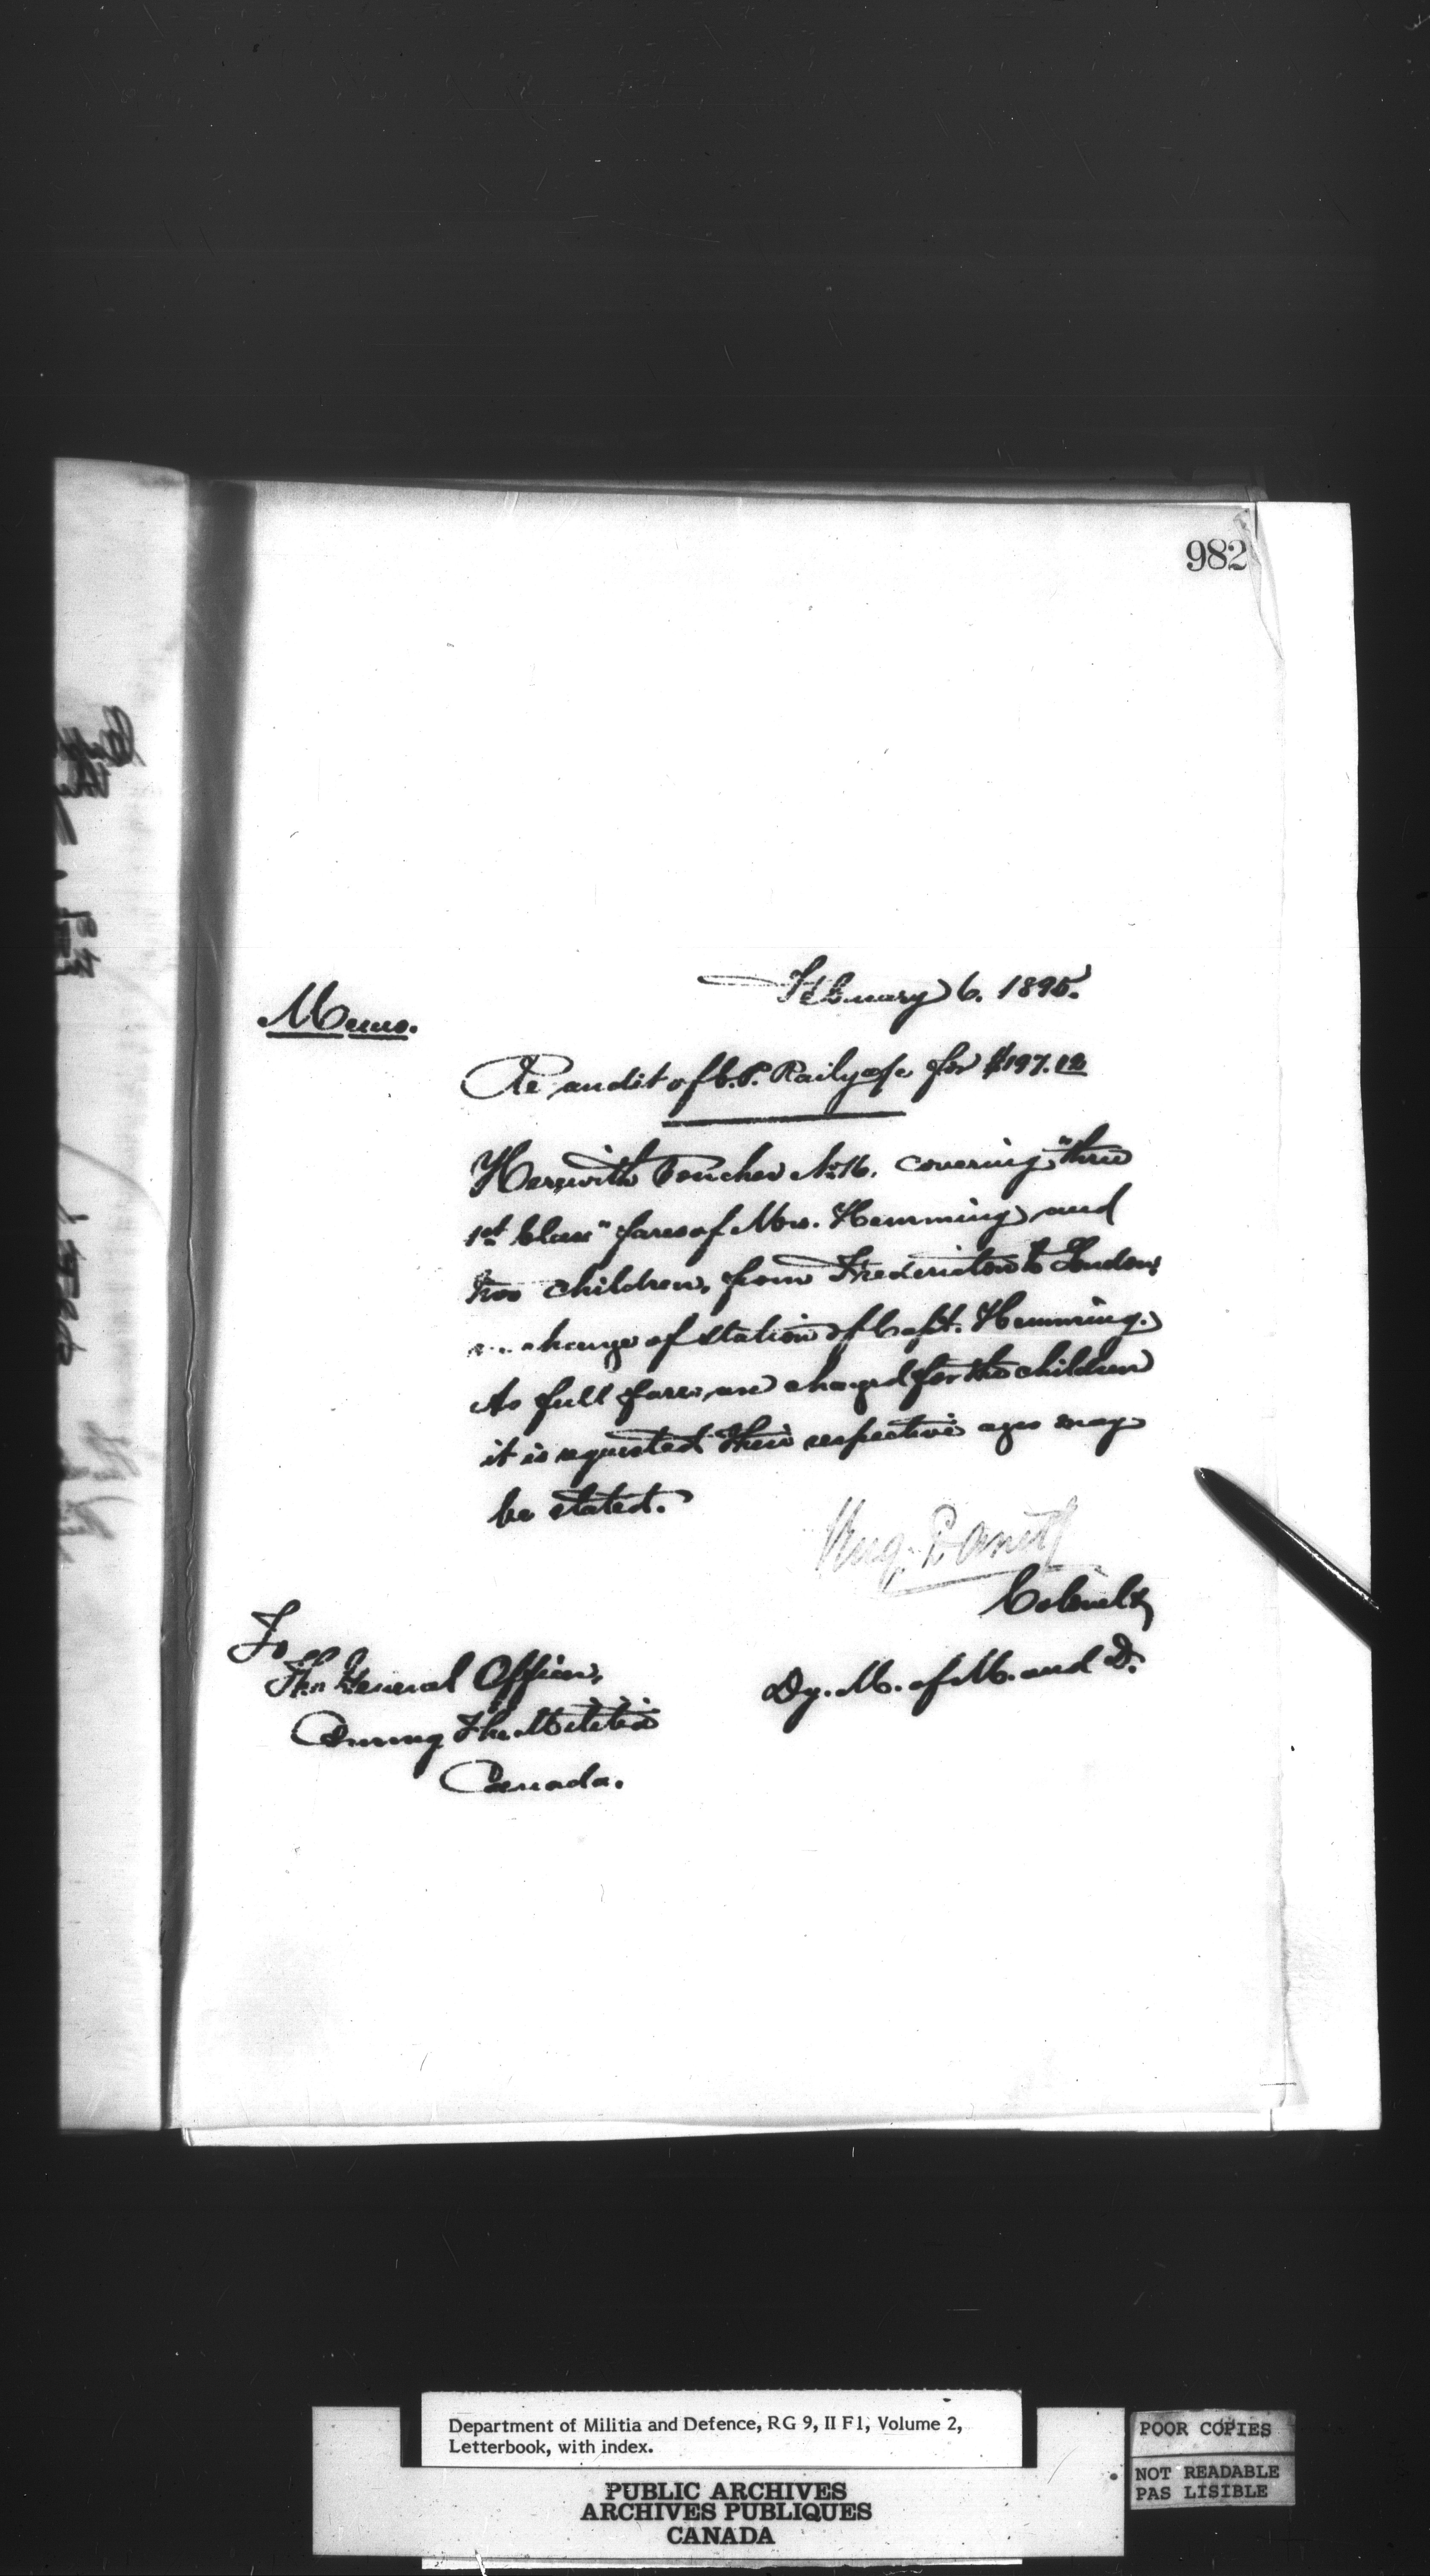 982
February 6. 1895.
Memo.
Re audit of C.P. Raily a/c for $197.12
Herewith Voucher No. 16. covering "three
1st Class" fares of Mrs. Hemming and
two children, from Fredericton to London,
change of station of Capt. Hemming.
As full fares are charged for the children
it is requested their respective ages may
be stated.
Panet
Colonel,
Dy. M. of M. and D.
To
The General Officer,
Comng The Militia
Canada.
Department of Militia and Defence, RG 9, II F1, Volume 2,
Letterbook, with index.
PUBLIC ARCHIVES
ARCHIVES PUBLIQUES
CANADA
POOR COPIES
NOT READABLE
PAS LISIBLE